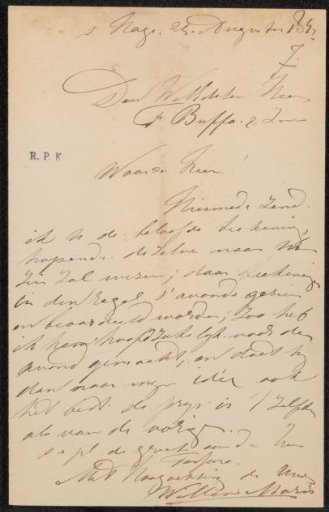 s Hage. 24 Augustus
7.
Den WelEdelen Heer
F Buffa & Zonen
R. P. K.
Waarde Heer!
Hiermede zend
ik U de beloofde teekening
hopende dezelve naar
zin zal wezen, daar teekeningen
in den regel s'avonds gezien
en beoordeeld worden, zoo heb
ik hem hoofdzakelijk voor den
avond gemaakt, en doet hij
dan naar mijn idée ook
het best. de prijs is 't zelfde
als van de vorige.
Met Hoogachting de Uwe
Willem Maris